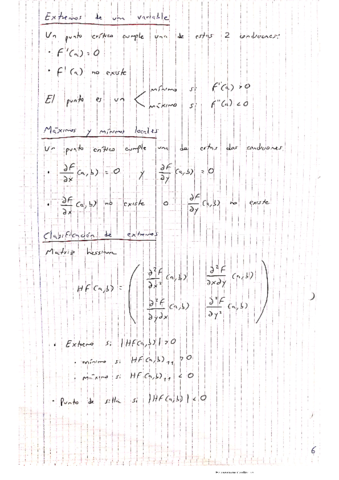 Extremos de una variable
Un punto crítico cumple una de estas 2 condiciones:
• F'(a) = 0
• F'(a) no existe
El punto es un < mínimo si F''(a) > 0
máximo si F''(a) < 0
Máximos y mínimos locales
Un punto crítico cumple una de estas dos condiciones
• ∂F/∂x (a,b) = 0 y ∂F/∂y (a,b) = 0
• ∂F/∂x (a,b) no existe o ∂F/∂y no existe
Clasificación de extremos
Matriz hessiana
HF(a,b) = ( ∂²F/∂x² (a,b) ∂²F/∂x∂y (a,b)
∂²F/∂y∂x (a,b) ∂²F/∂y² (a,b) )
• Extremo si |HF(a,b)| > 0
• mínimo si HF(a,b)₁₁ > 0
• máximo si HF(a,b)₁₁ < 0
• Punto de silla si |HF(a,b)| < 0
6